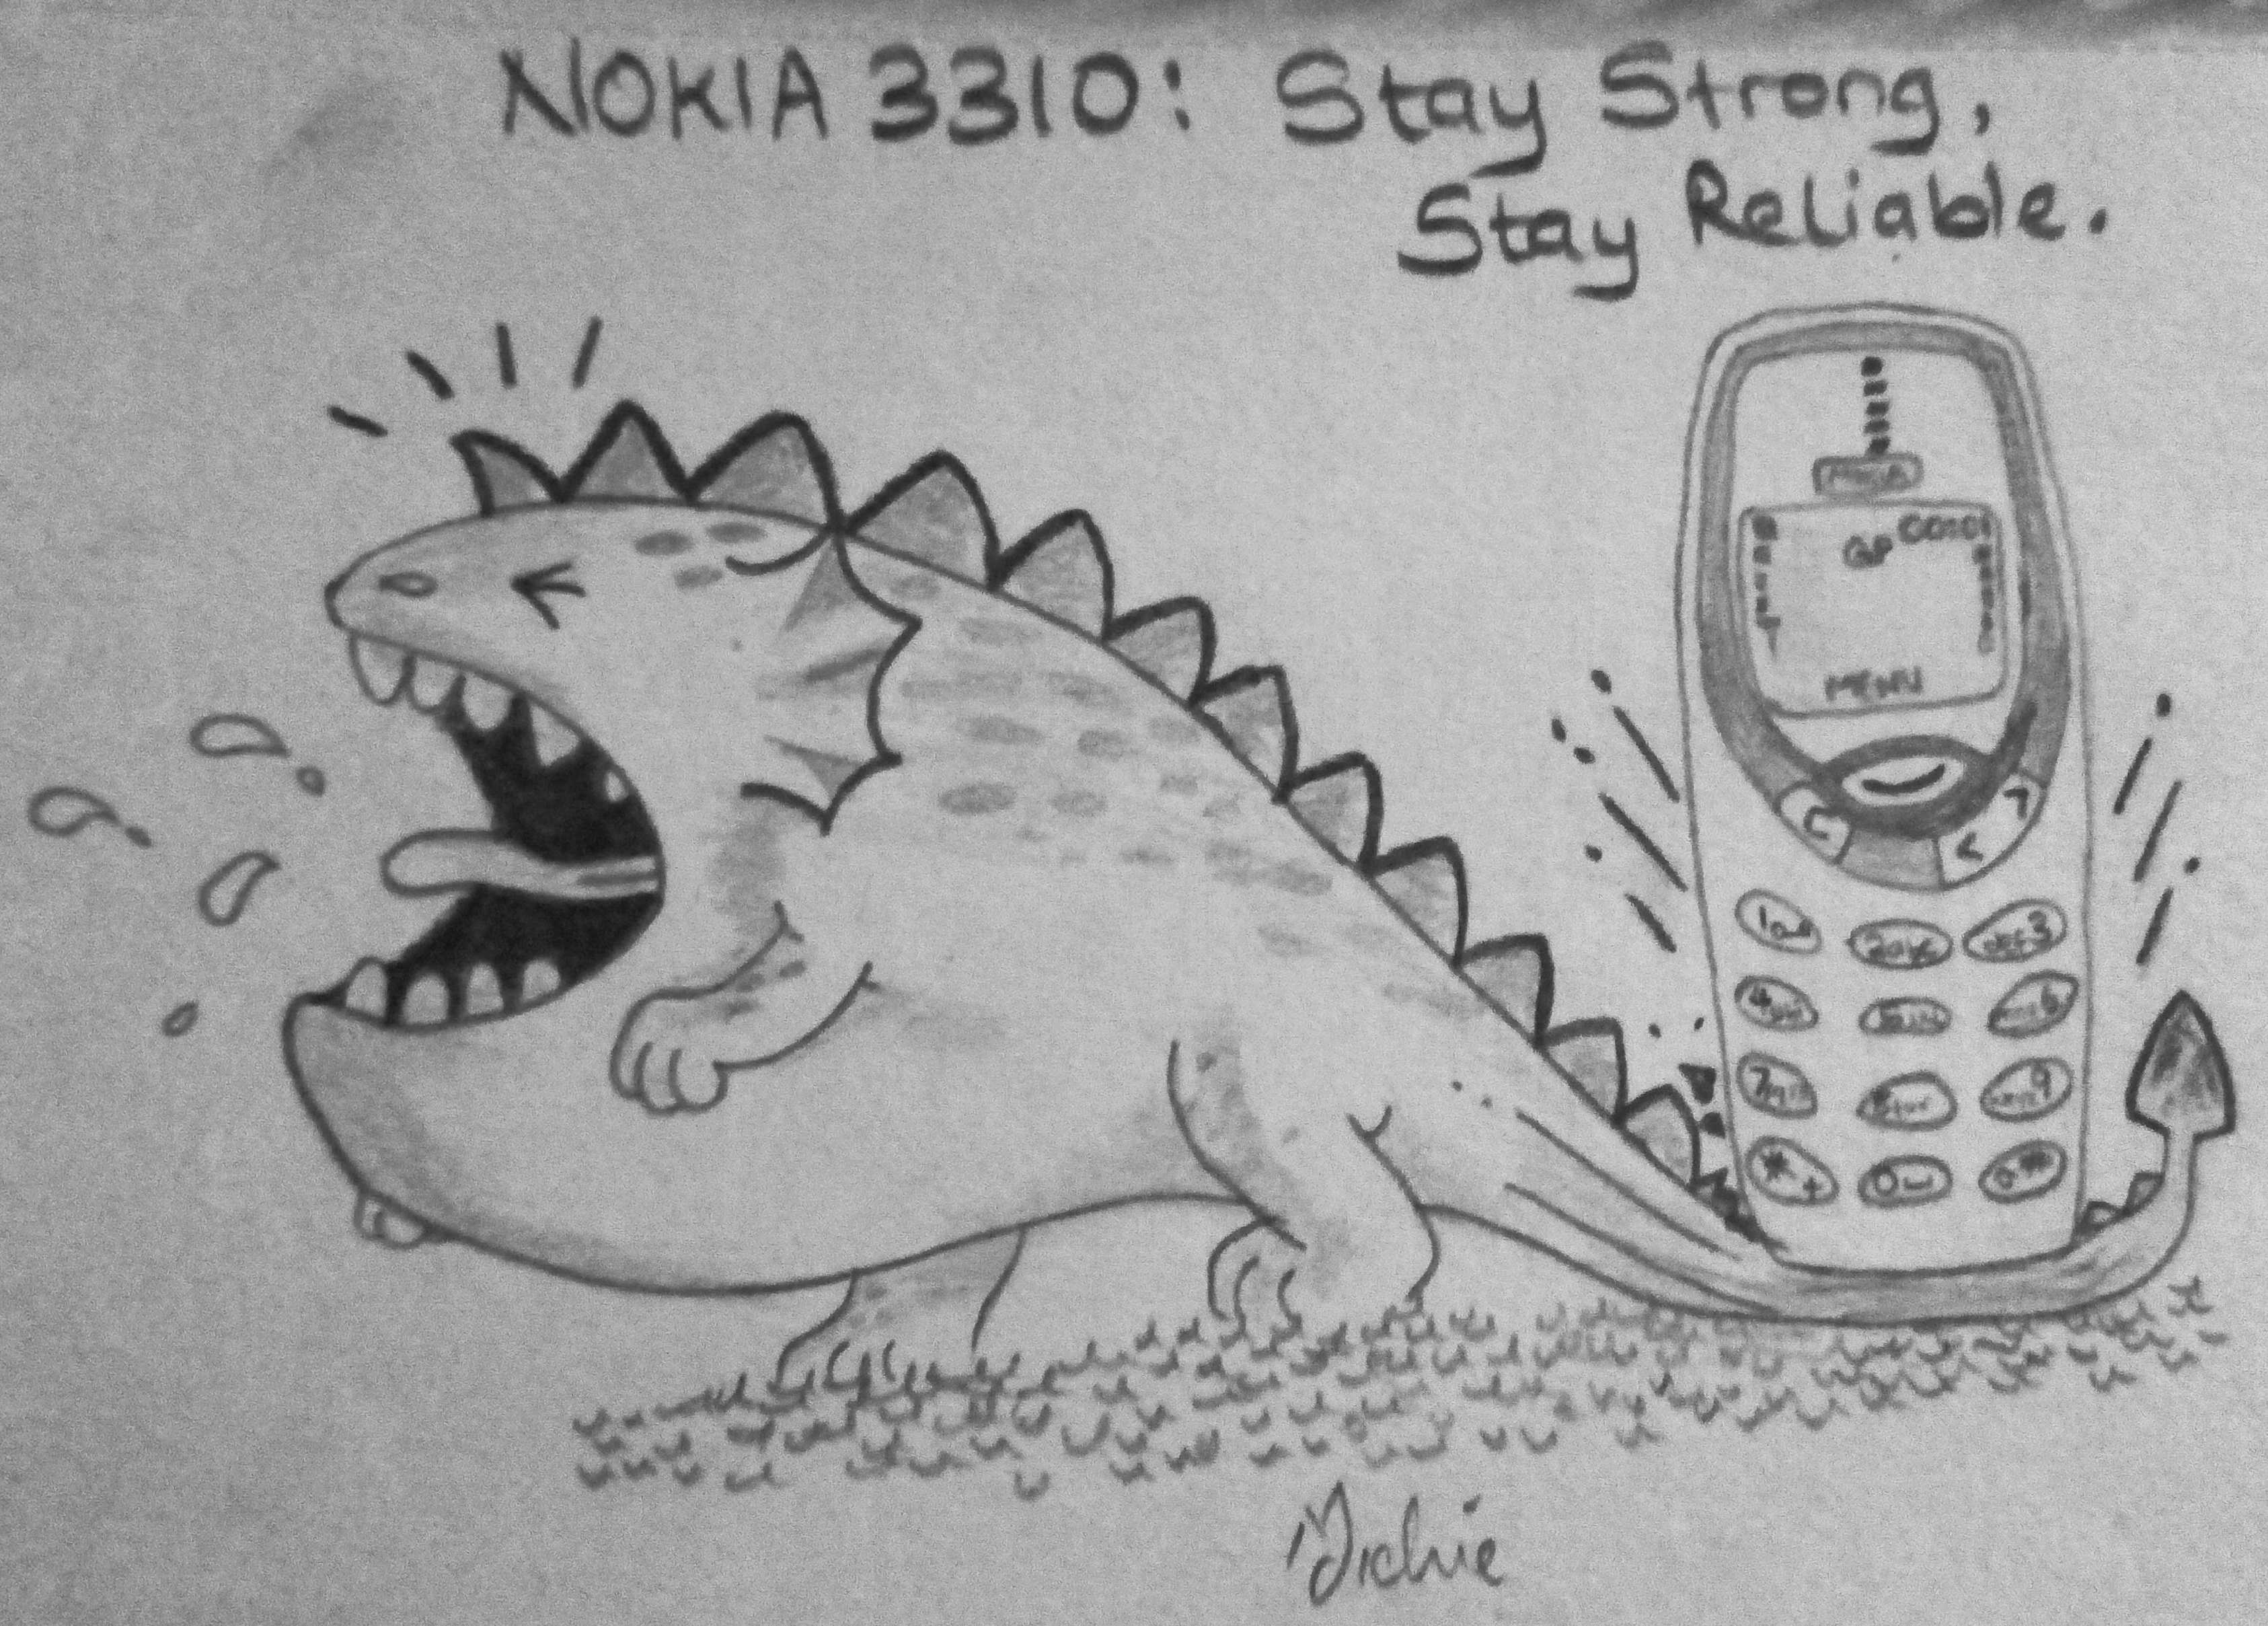 NOKIA 3310: Stay Strong,
Stay Reliable.
NOKIA
GP
MENU
C
1
2abc
def3
4ghi
5jkl
mno6
7pqrs
8tuv
wxyz9
*+
0
#
Richie